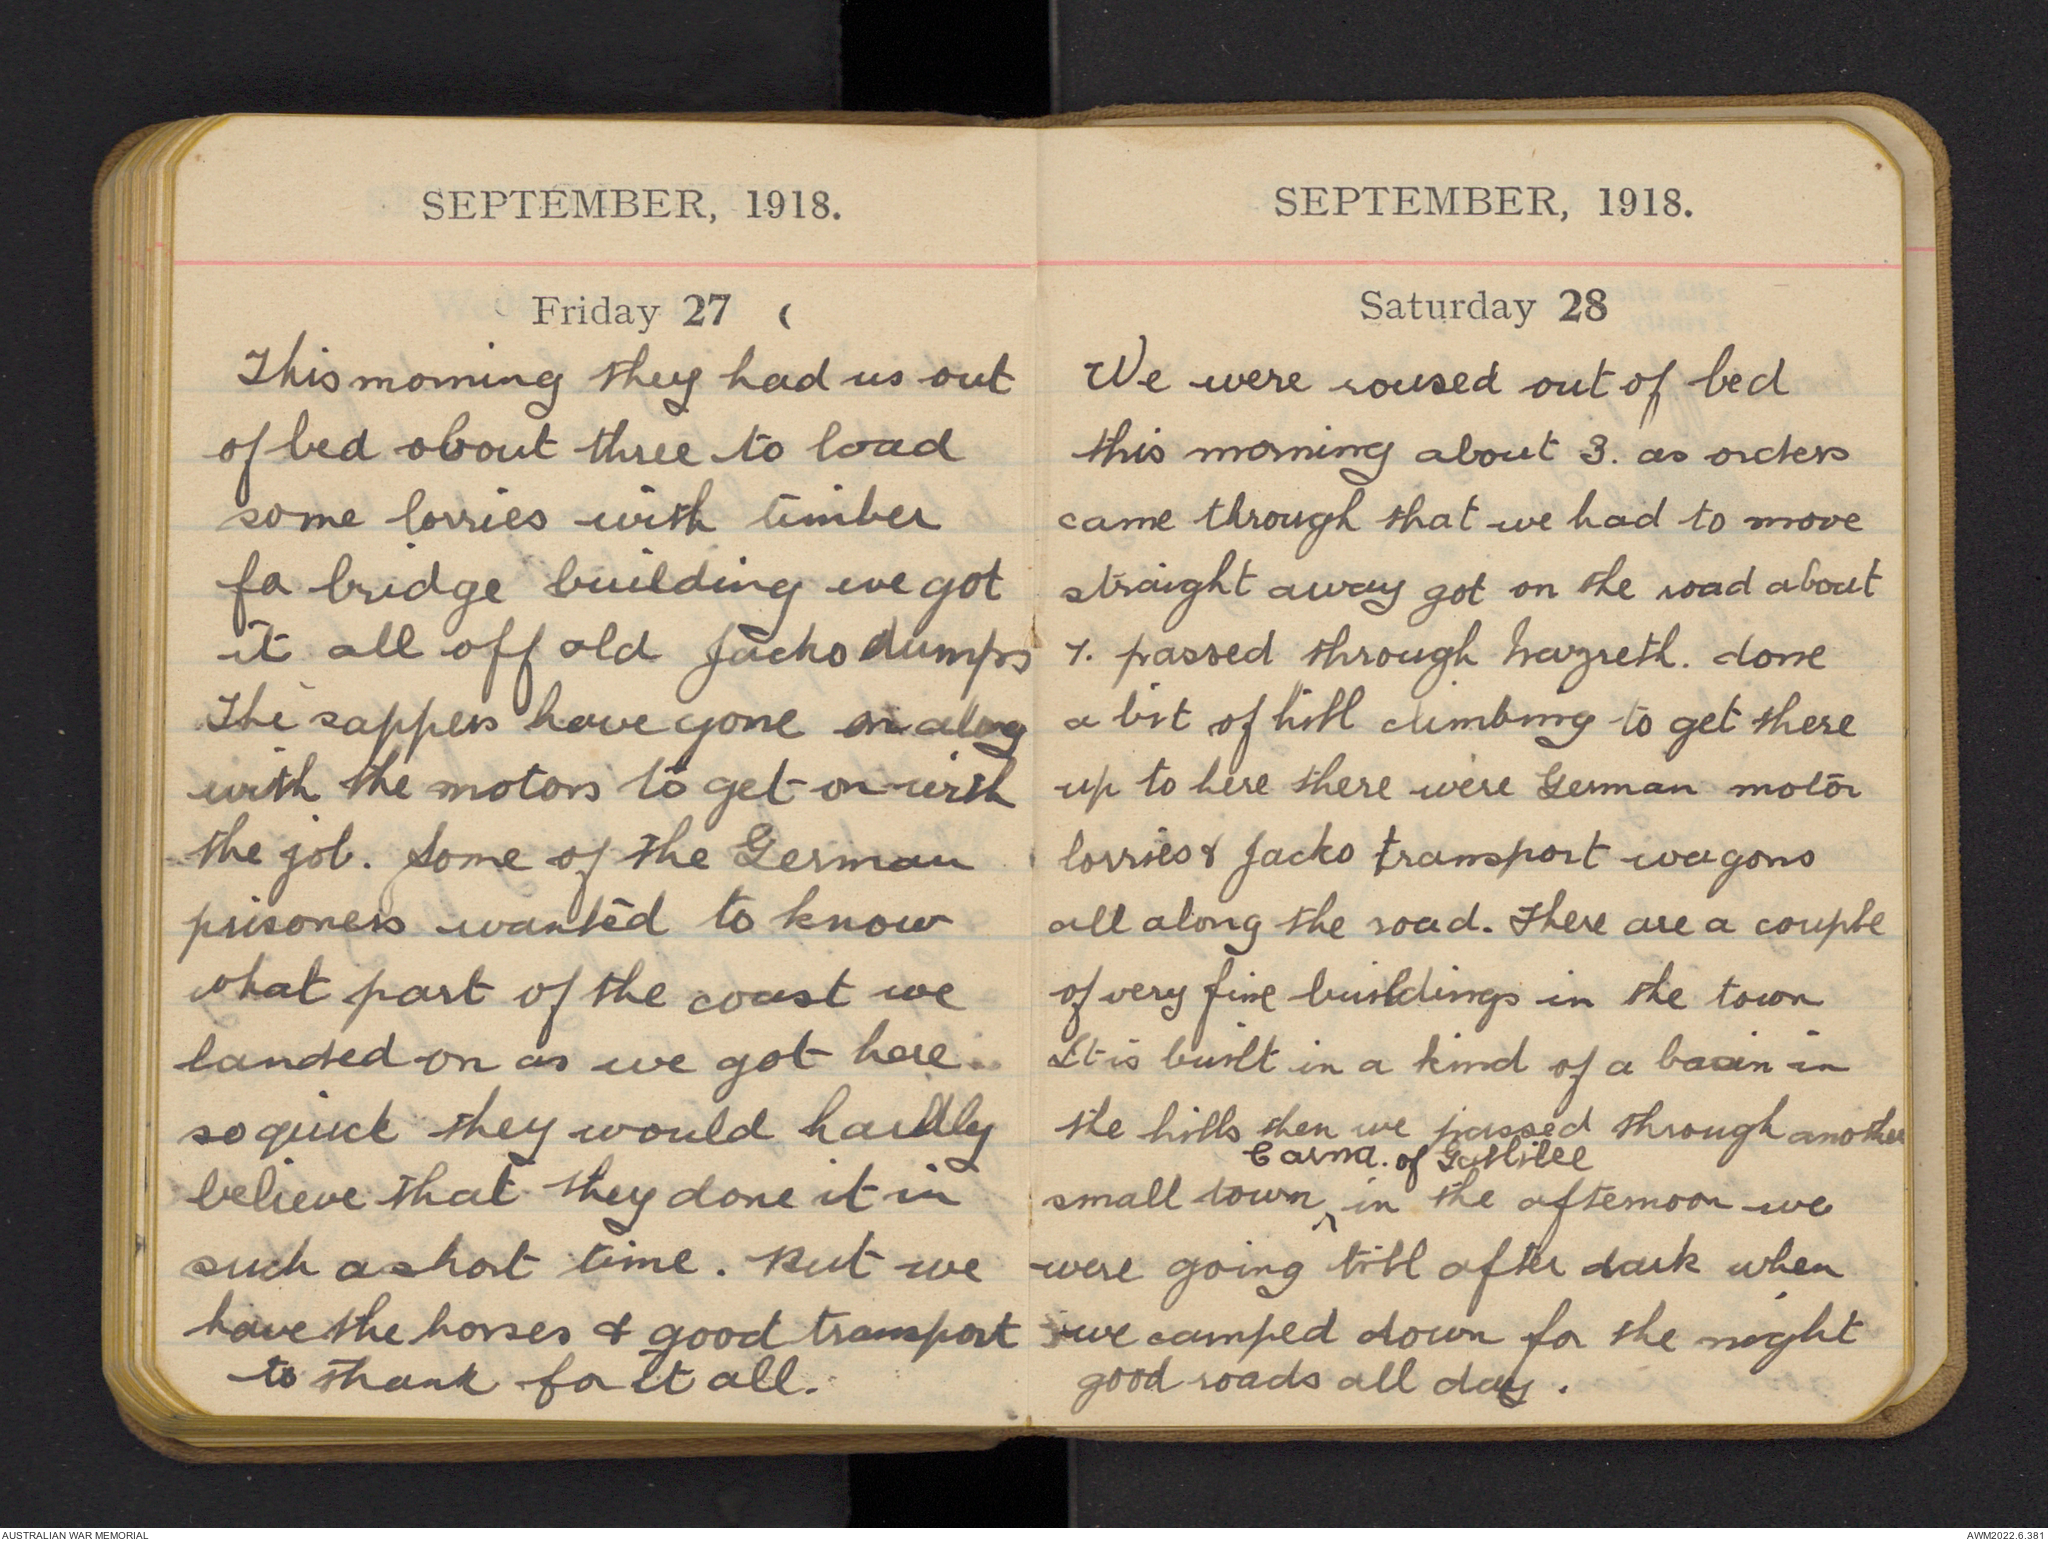 SEPTEMBER, 1918.
Friday 27
This morning they had us out
of bed about three to load
some lorries with timber
fo bridge building we got
it all off old Jacko dumps
The sappers have gone on along
with the motors to get on with
the job. Some of the German
prisoners wanted to know
what part of the coast we
landed on as we got here
so quick they would hardly
believe that they done it in
such a short time. But we
have the horses & good transport
to thank for it all.
SEPTEMBER, 1918.
Saturday 28
We were roused out of bed
this morning about 3. as orders
came through that we had to move
straight away got on the road about
7. passed through Nazreth. done
a bit of hill climbing to get there
up to here there were German motor
lorries & Jacko transport wagons
all along the road. There are a couple
of very fine buildings in the town
It is built in a kind of a basin in
the hills then we passed through another
Carna. of Gallilee
small town ^ in the afternoon we
were going till after dark when
we camped down for the night
good roads all day.
AUSTRALIAN WAR MEMORIAL
AWM2022.6.381